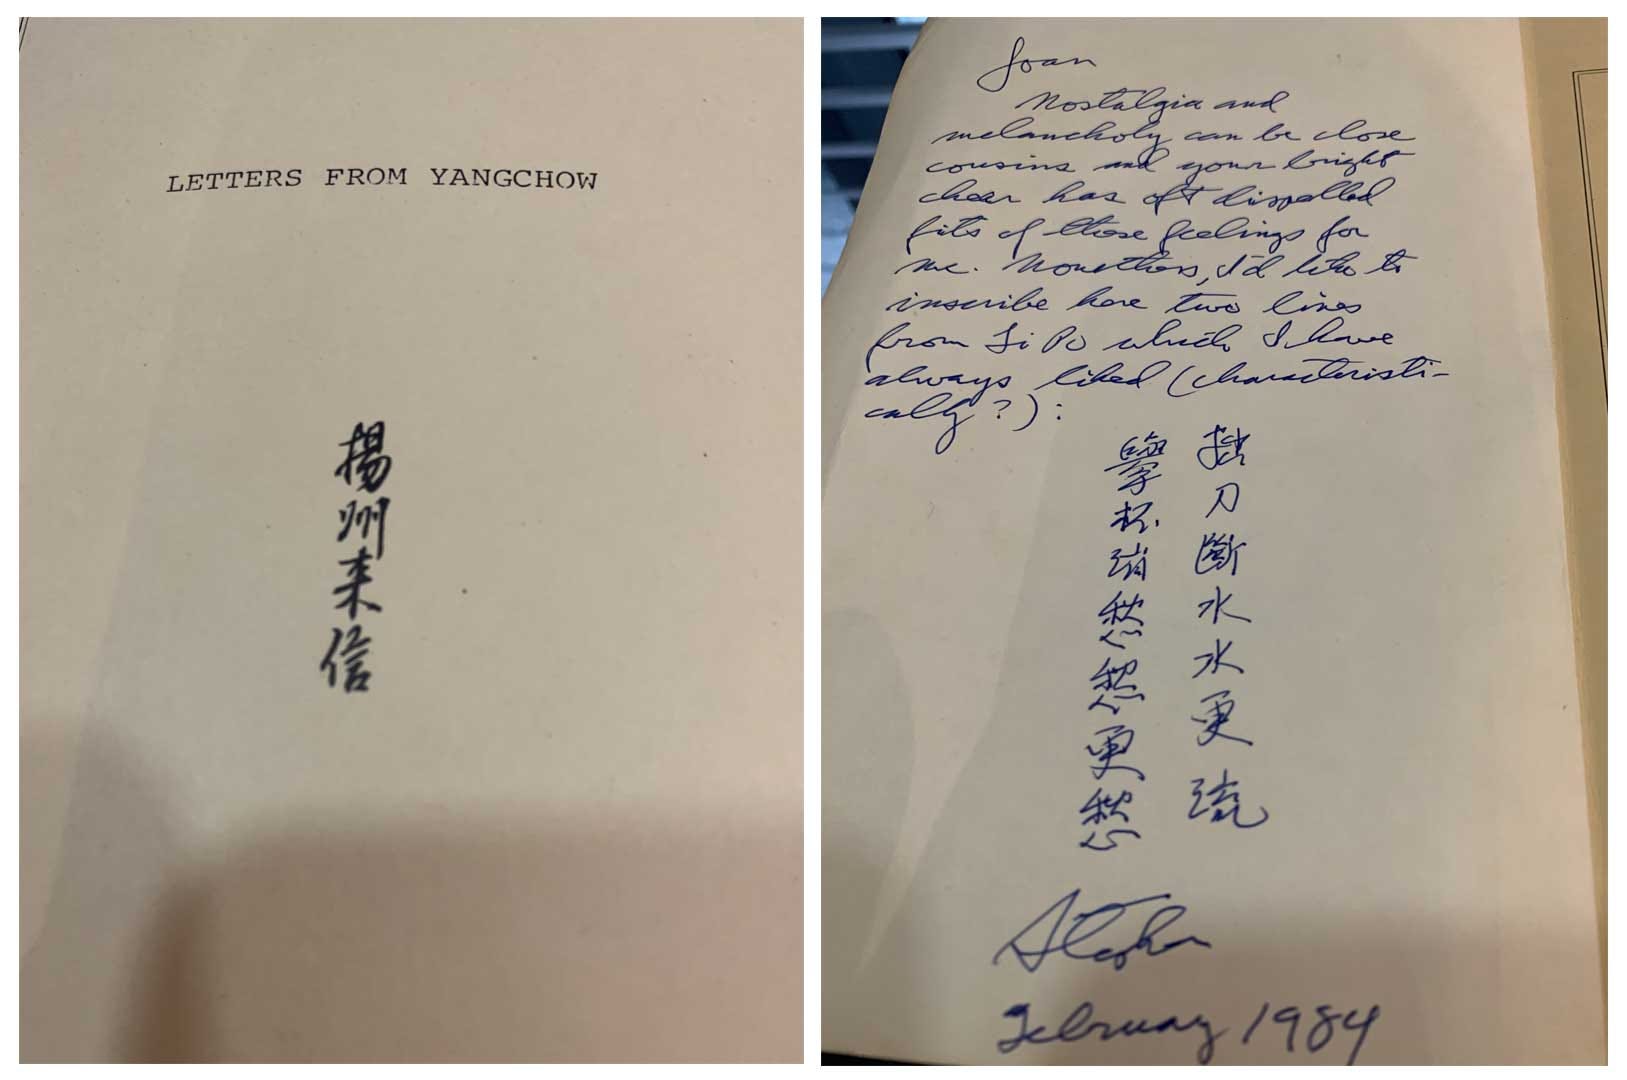 LETTERS FROM YANGCHOW
揚州来信
Joan
Nostalgia and
melancholy can be close
cousins and your bright
cheer has oft dispelled
fits of those feelings for
me. Nonetheless, I'd like to
inscribe here two lines
from Li Po which I have
always liked (characteristi-
cally?):
抽刀斷水水更流
舉杯消愁愁更愁
Stephen
February 1984